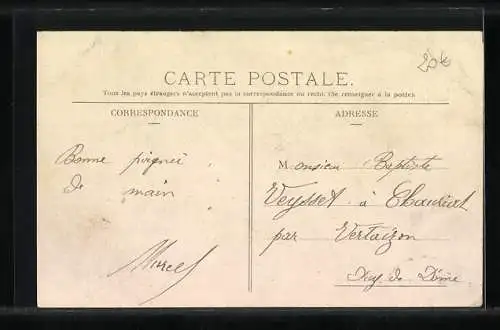 20k
CARTE POSTALE.
Tous les pays étrangers n'acceptent pas la correspondance au recto. (Se renseigner à la poste).
CORRESPONDANCE
ADRESSE
Bonne poignei
de main
Marcel
Monsieur Baptiste
Veysset à Chauriat
par Vertaizon
Puy de Dôme